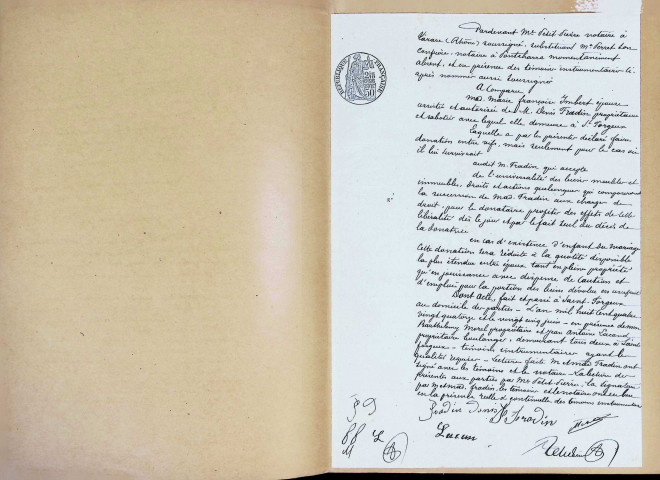 Pardevant Me Petit Pierre notaire à
Tarare (Rhône) soussigné, substituant Me Perret son
confrère, notaire à Pontcharra momentanément
absent, et en présence des témoins instrumentaires ci-
après nommés aussi soussignés
A Comparu
Mad. Marie françoise Imbert épouse
assistée et autorisée de M. Denis Fradin propriétaire
et sabotier avec lequel elle demeure à St. Forgeux
Laquelle a par les présentes déclaré faire
donation entre vifs, mais seulement pour le cas où
il lui survivrait
audit M. Fradin qui accepte
de l'universalité des biens meubles et
immeubles, droits et actions quelconques qui composeront
la succession de Mad. Fradin aux charges de
droit, pour le donataire profiter des effets de cette
libéralité dès le jour et par le fait seul du décès de
la donatrice
en cas d'existence d'enfant du mariage
cette donation sera réduite à la quotité disponible
la plus étendue entre époux tant en pleine propriété
qu'en jouissance avec dispense de caution et
d'emploi pour la portion des biens dévolue en usufruit
Dont acte, fait et passé à Saint-Forgeux
au domicile des parties - L'an mil huit cent quatre
vingt quatorze et le vingt cinq juin - en présence de MM.
Barthélemy Morel propriétaire et Jean Antoine
propriétaire boulanger, demeurant tous deux à Saint
Forgeux - témoins instrumentaires ayant les
qualités requises - Lecture faite M et Mad. Fradin ont
signé avec les témoins et le notaire - La lecture des
présentes aux parties par Me Petit-Pierre, la signature
par M et Mad. Fradin, les témoins et le notaire ont eu lieu
en la présence réelle des témoins instrumentaires
Fradin Denis Fradin
REPUBLIQUE FRANÇAISE
50